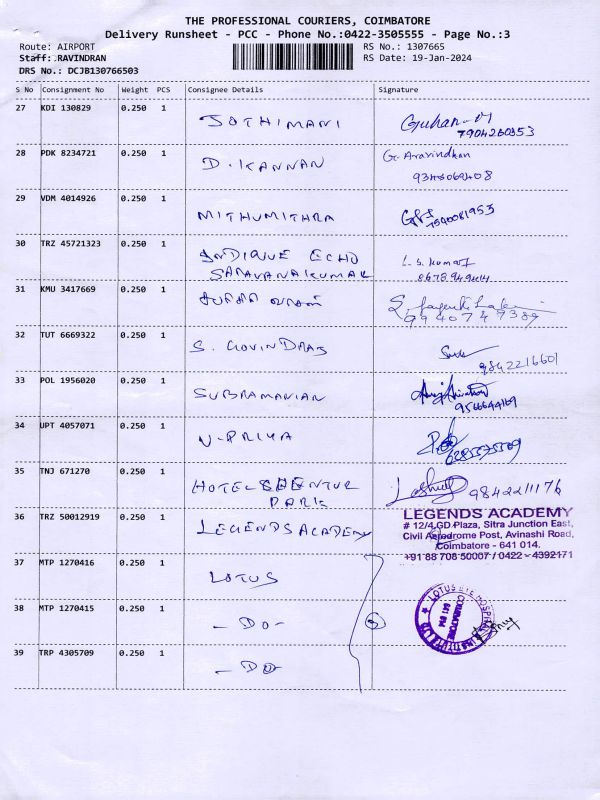 THE PROFESSIONAL COURIERS, COIMBATORE
Delivery Runsheet - PCC - Phone No.:0422-3505555 - Page No.:3
Route: AIRPORT RS No.: 1307665
Staff: RAVINDRAN RS Date: 19-Jan-2024
DRS No.: DCJB130766503
S No Consignment No Weight PCS Consignee Details Signature
27 KDI 130829 0.250 1 JOTHIMANI Guhan-M
7904260353
28 PDK 8234721 0.250 1 D. KANNAN G. Aravindhan
29 VDM 4014926 0.250 1 MITHUMITHRA
7540081953
30 TRZ 45721323 0.250 1 ECHO L. S. Kumar
SARAVANAKUMAR
31 KMU 3417669 0.250 1
9940747389
32 TUT 6669322 0.250 1 S. GOVINDRAJ
9842216601
33 POL 1956020 0.250 1 SUBRAMANIAN
9566644169
34 UPT 4057071 0.250 1 V-PRIYA
35 TNJ 671270 0.250 1 HOTEL 9842211176
PARK
36 TRZ 50012919 0.250 1 LEGENDS ACADEMY LEGENDS ACADEMY
# 12/4,GD Plaza, Sitra Junction East,
Civil Aerodrome Post, Avinashi Road,
Coimbatore - 641 014.
+91 88 708 50007 / 0422 - 4392171
37 MTP 1270416 0.250 1 LOTUS
38 MTP 1270415 0.250 1 - DO - 3 LOTUS EYE HOSPITAL
COIMBATORE
641 014
39 TRP 4305709 0.250 1 - DO -